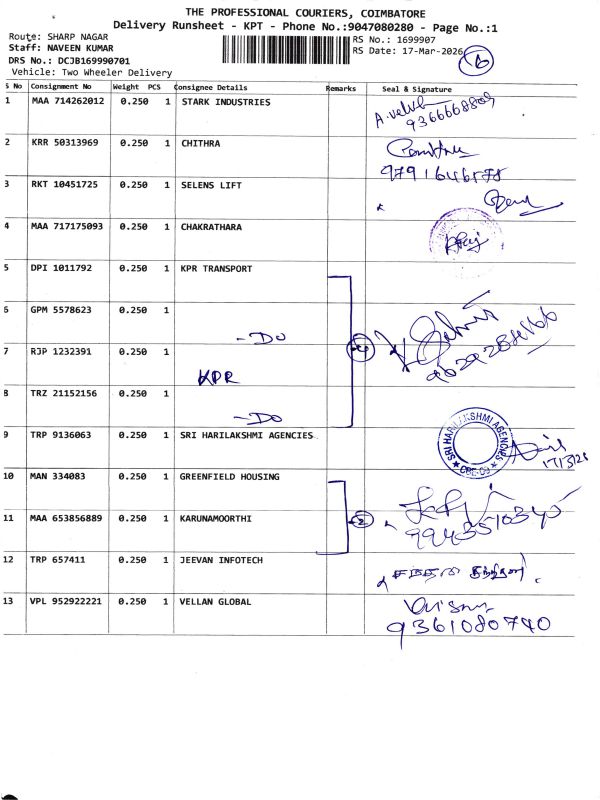 THE PROFESSIONAL COURIERS, COIMBATORE
Delivery Runsheet - KPT - Phone No.:9047080280 - Page No.:1
Route: SHARP NAGAR
RS No.: 1699907
Staff: NAVEEN KUMAR
RS Date: 17-Mar-2026
DRS No.: DCJB169990701
Vehicle: Two Wheeler Delivery
S No Consignment No Weight PCS Consignee Details Remarks Seal & Signature
1 MAA 714262012 0.250 1 STARK INDUSTRIES
2 KRR 50313969 0.250 1 CHITHRA
9791646578
3 RKT 10451725 0.250 1 SELENS LIFT
4 MAA 717175093 0.250 1 CHAKRATHARA
5 DPI 1011792 0.250 1 KPR TRANSPORT
6 GPM 5578623 0.250 1
-DO
7 RJP 1232391 0.250 1
KPR
8 TRZ 21152156 0.250 1
-DO
9 TRP 9136063 0.250 1 SRI HARILAKSHMI AGENCIES
SRI HARILAKSHMI AGENCIES
CBE-09
17/3/26
10 MAN 334083 0.250 1 GREENFIELD HOUSING
11 MAA 653856889 0.250 1 KARUNAMOORTHI
12 TRP 657411 0.250 1 JEEVAN INFOTECH
13 VPL 952922221 0.250 1 VELLAN GLOBAL
9361080740